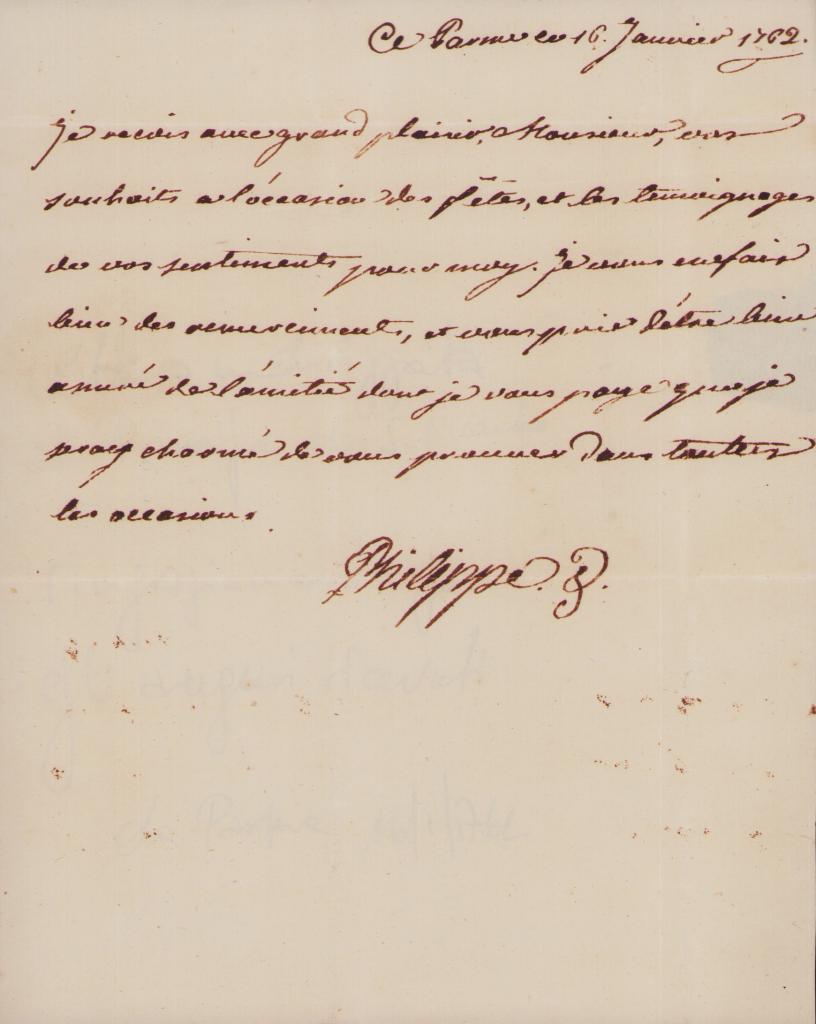 Ce Parme ce 16. Janvier 1762.
je recois avec grand plaisir, Monsieur, vos
souhaits a l'occasion des fêtes, et les témoignages
de vos sentiments pour moy. je vous en fais
bien des remerciments, et vous prie d'être bien
assuré de l'amitié dont je vous paye que je
seray charmé de vous prouver dans touttes
les occasions.
Philippe.